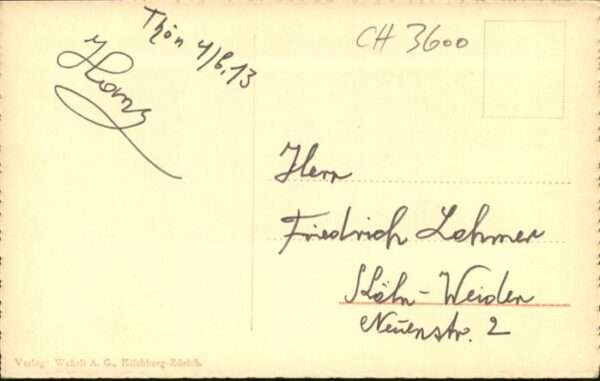 Thön 4/6.13
Hans
CH 3600
Herrn
Friedrich Lohmer
Köln-Weiden
Neuenstr. 2
Verlag: Wehrli A. G., Kilchberg-Zürich.